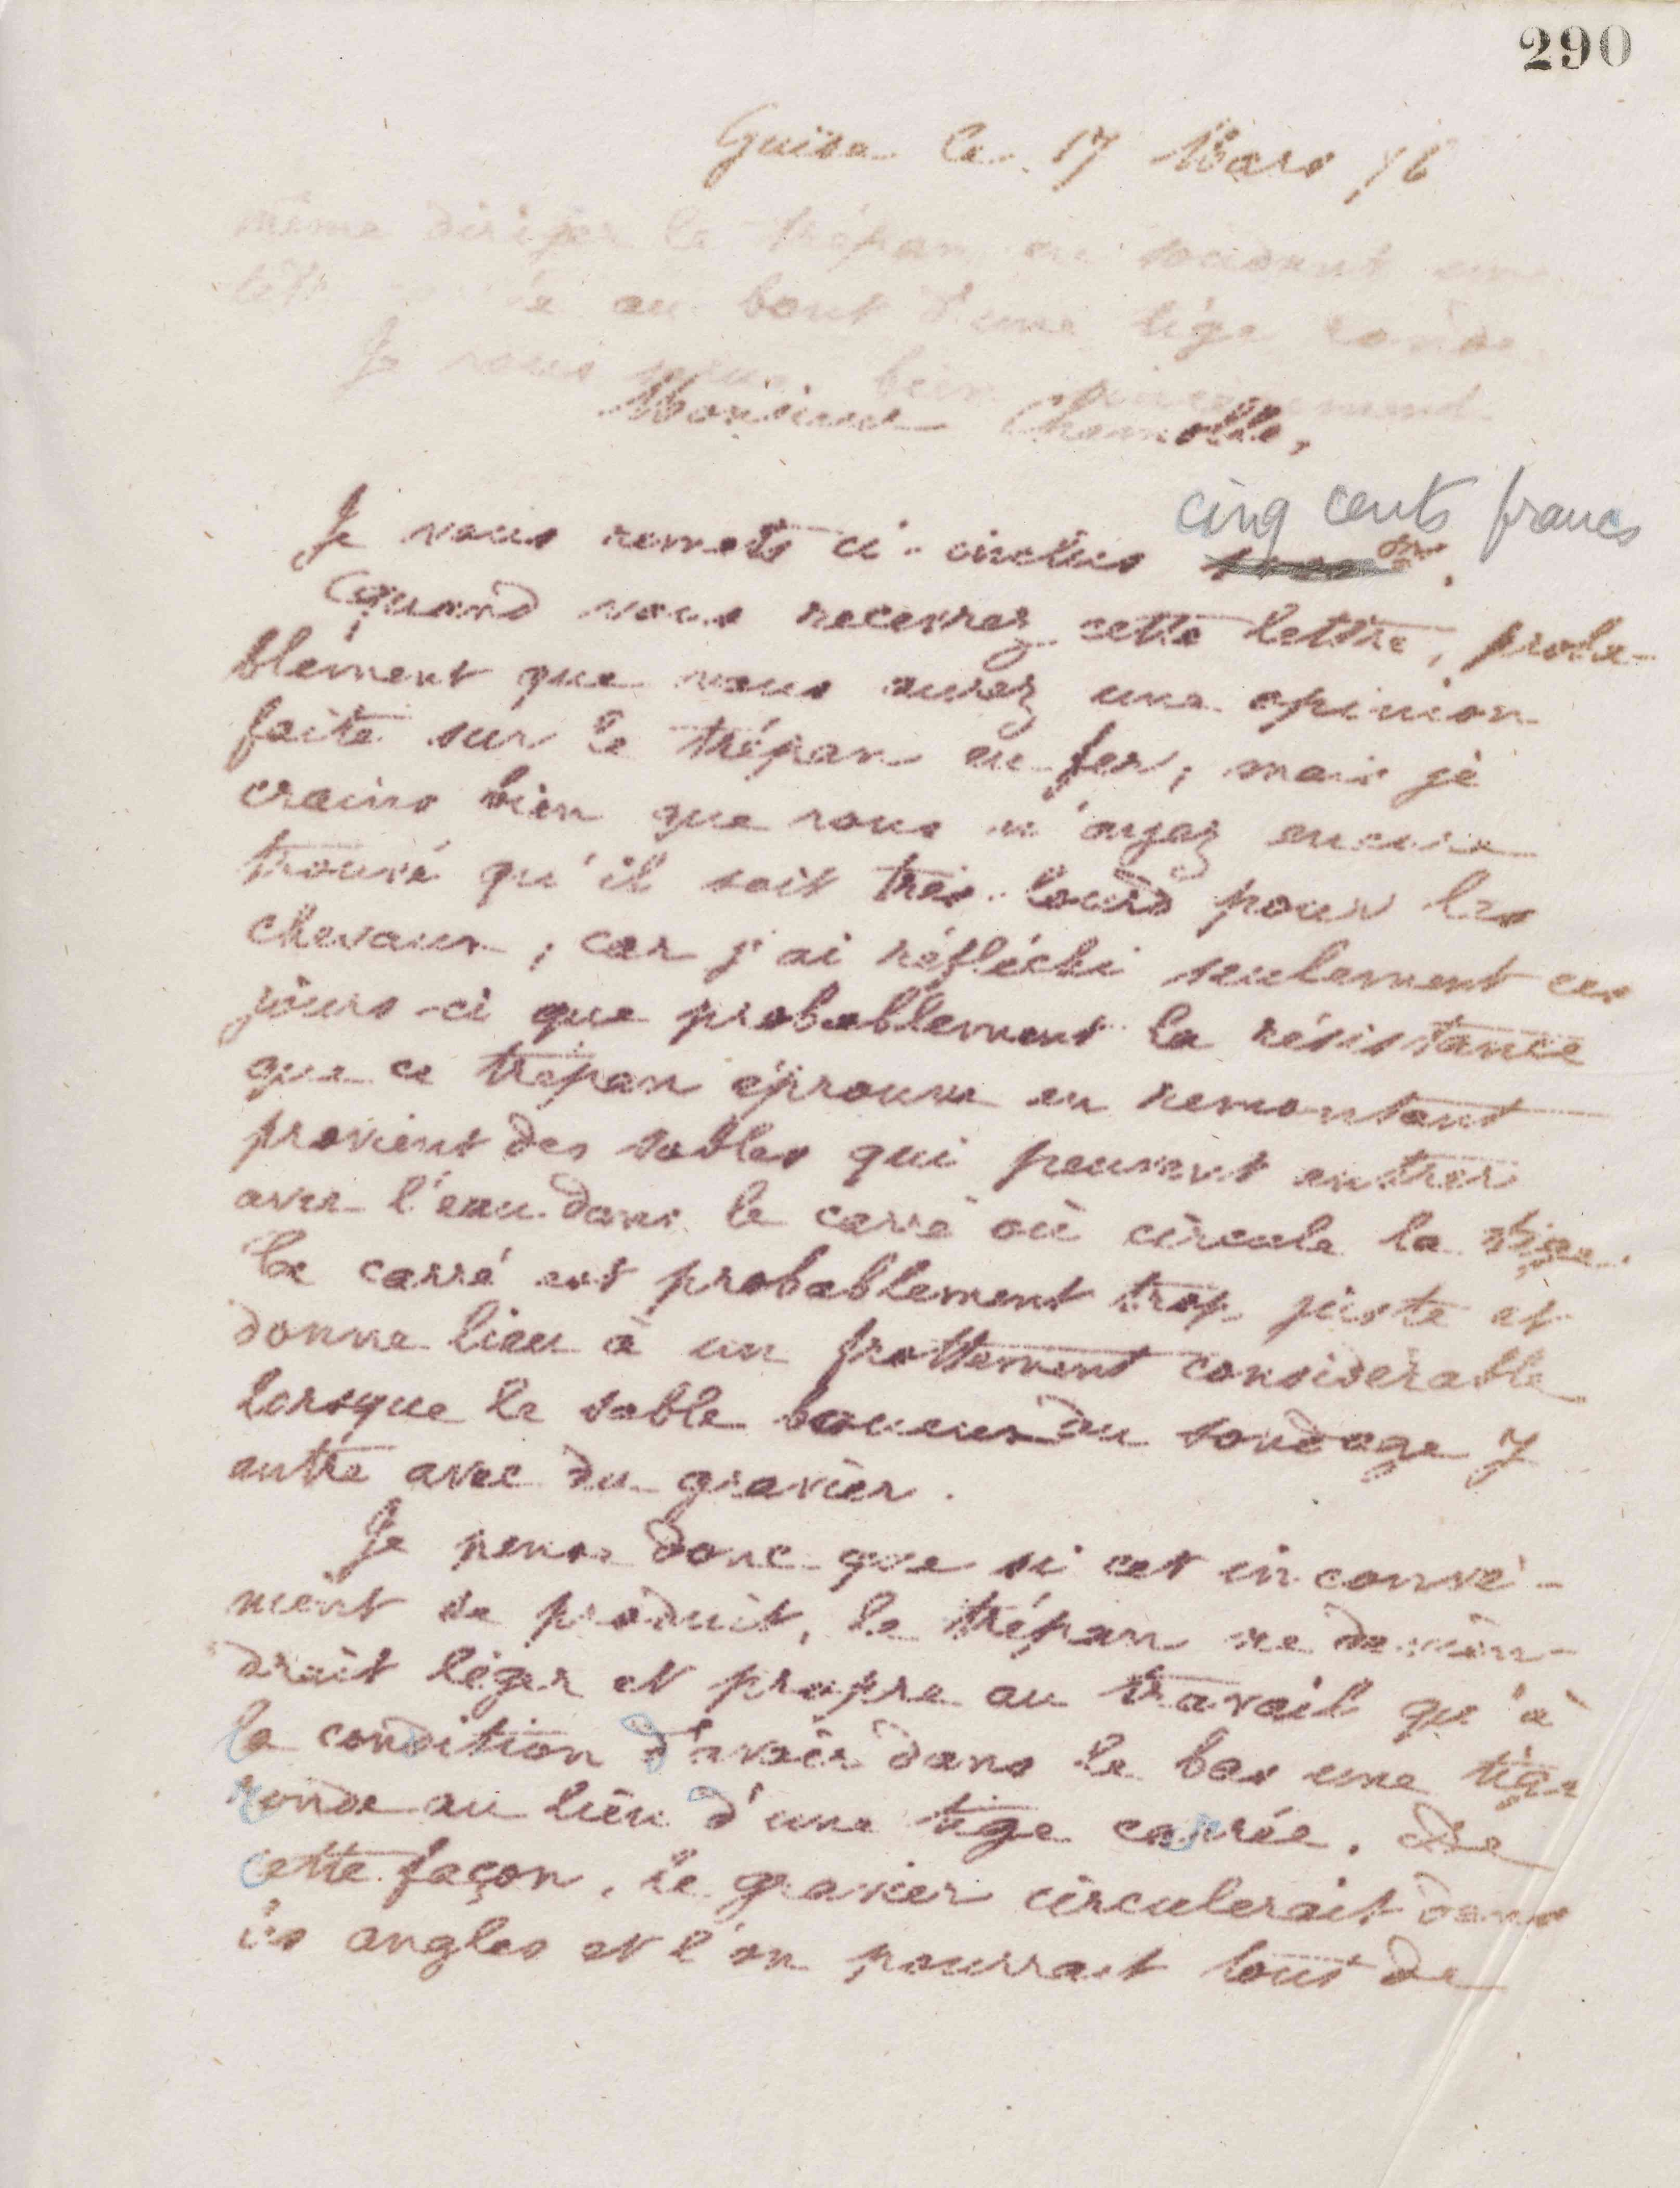 290
Guise le 17 Mars 76
même diriger le trépan en soudant une
tête au bout d'une tige ronde.
Je vous bien
Monsieur
cinq cents francs
Je vous remets ci-inclus
Quand vous recevrez cette lettre, proba-
blement que vous aurez une opinion
faite sur le trépan en fer, mais je
crains bien que vous n'ayez encore
trouvé qu'il soit très lourd pour les
chevaux, car j'ai réfléchi seulement ces
jours-ci que probablement la résistance
que ce trépan éprouve en remontant
provient des sables qui peuvent entrer
avec l'eau dans le carré où circule la tige.
Ce carré est probablement trop juste et
donne lieu à un frottement considérable
lorsque le sable boueux du sondage y
entre avec du gravier.
Je pense donc que si cet inconvé-
nient se produit, le trépan ne devien-
drait léger et propre au travail qu'à
la condition d'avoir dans le bas une tige
ronde au lieu d'une tige carrée. De
cette façon, le gravier circulerait dans
les angles et l'on pourrait tout de